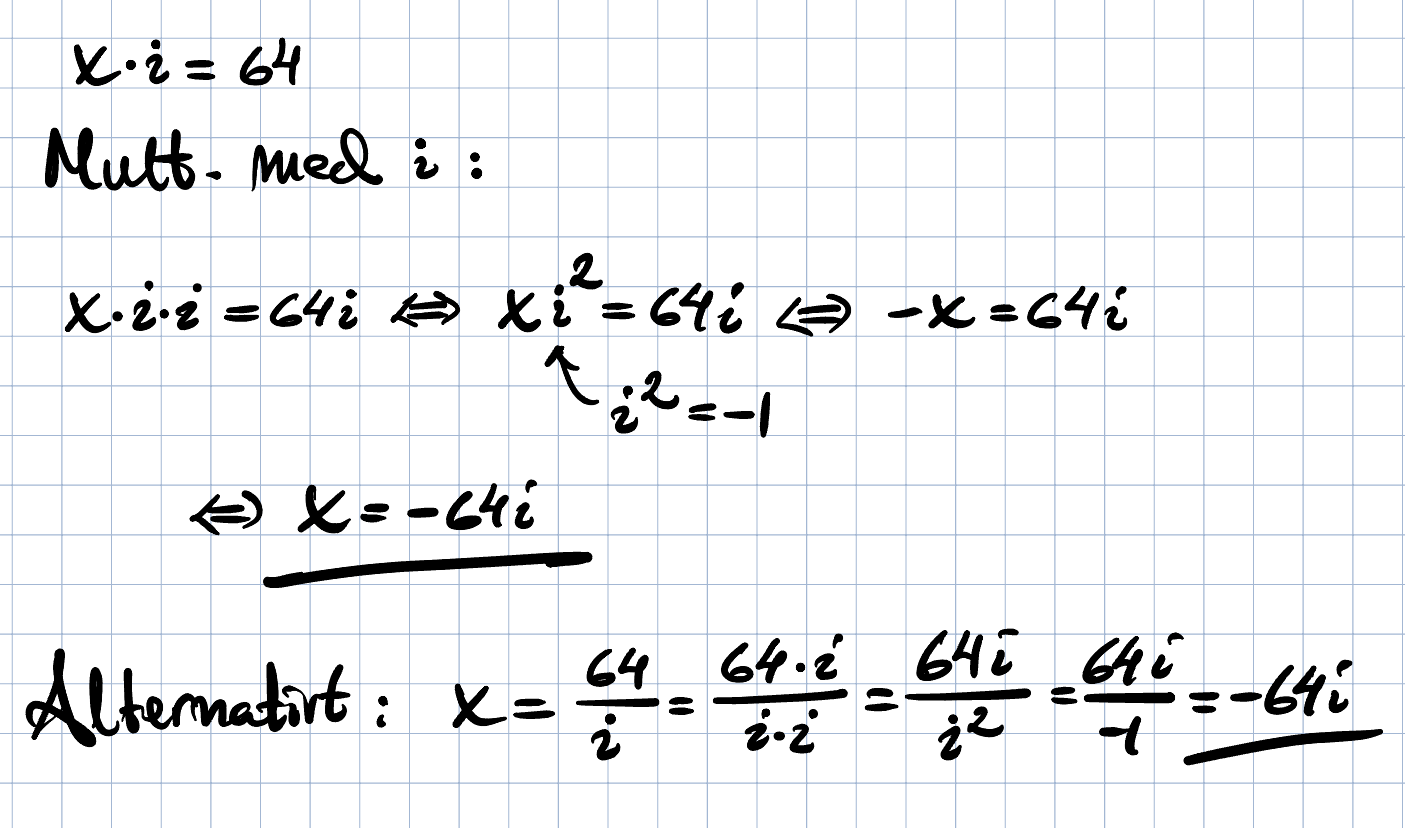 x·i = 64
Mult. med i :
x·i·i = 64i ⇔ xi² = 64i ⇔ -x = 64i
i² = -1
⇔ x = -64i
Alternativt : x = 64/i = 64·i/i·i = 64i/i² = 64i/-1 = -64i